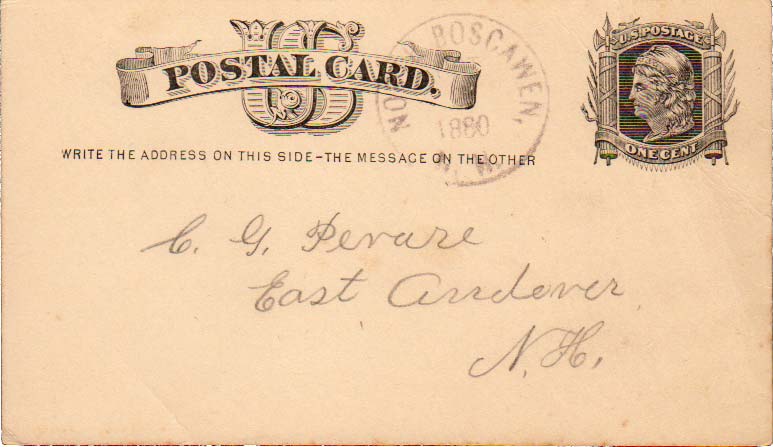 US
POSTAL CARD.
WRITE THE ADDRESS ON THIS SIDE-THE MESSAGE ON THE OTHER
BOSCAWEN,
1880
N.H.
U.S. POSTAGE
ONE CENT
C. G. Pevare
East Andover
N.H.